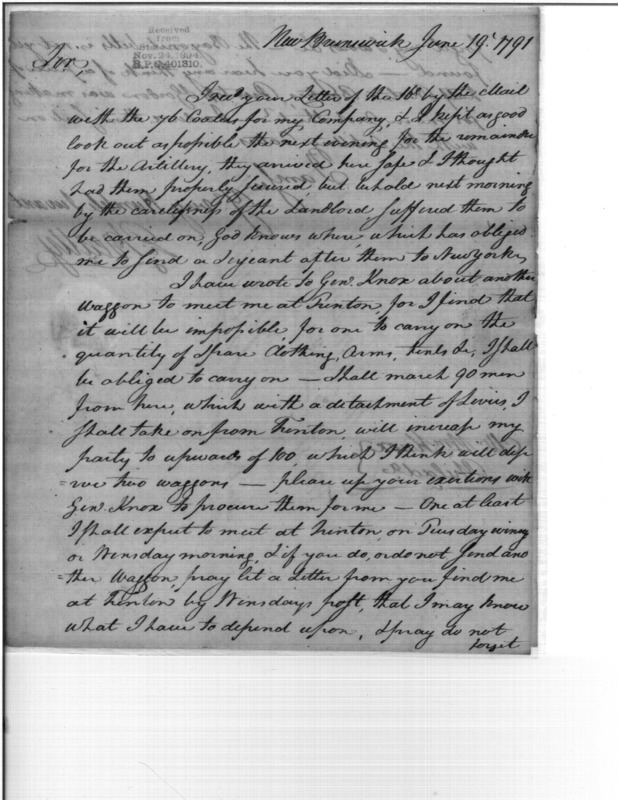 Received
from
Nov. 24, 1894
R.P. 401310.
New Brunswick June 19th 1791
Sir,
I recd your Letter of the 16th by the Mail
with the 76 Coates for my Company, & I kept as good
look out as possible the next evening for the remainder
for the Artillery, they arrived here safe & I thought
had them properly secured, but behold next morning
by the carelessness of the Landlord, suffered them to
be carried on, God knows where, which has obliged
me to send a Serjeant after them to New York,
I have wrote to Genl Knox about another
Waggon to meet me at Trenton, for I find that
it will be impossible for one to carry on the
quantity of Spare Clothing, Arms, tents &c, I shall
be obliged to carry on — I shall march 90 men
from here, which with a detachment of Levies, I
shall take on from Trenton, will increase my
party to upwards of 100 which I think will dese
=rve two waggons — please use your exertions with
Genl Knox to procure them for me — One at least
I shall expect to meet at Trenton on Tuesday evening
or Wensday morning, & if you do, or do not send ano
=ther Waggon, pray let a Letter from you find me
at Trenton by Wensdays post, that I may know
what I have to depend upon, & pray do not
forget